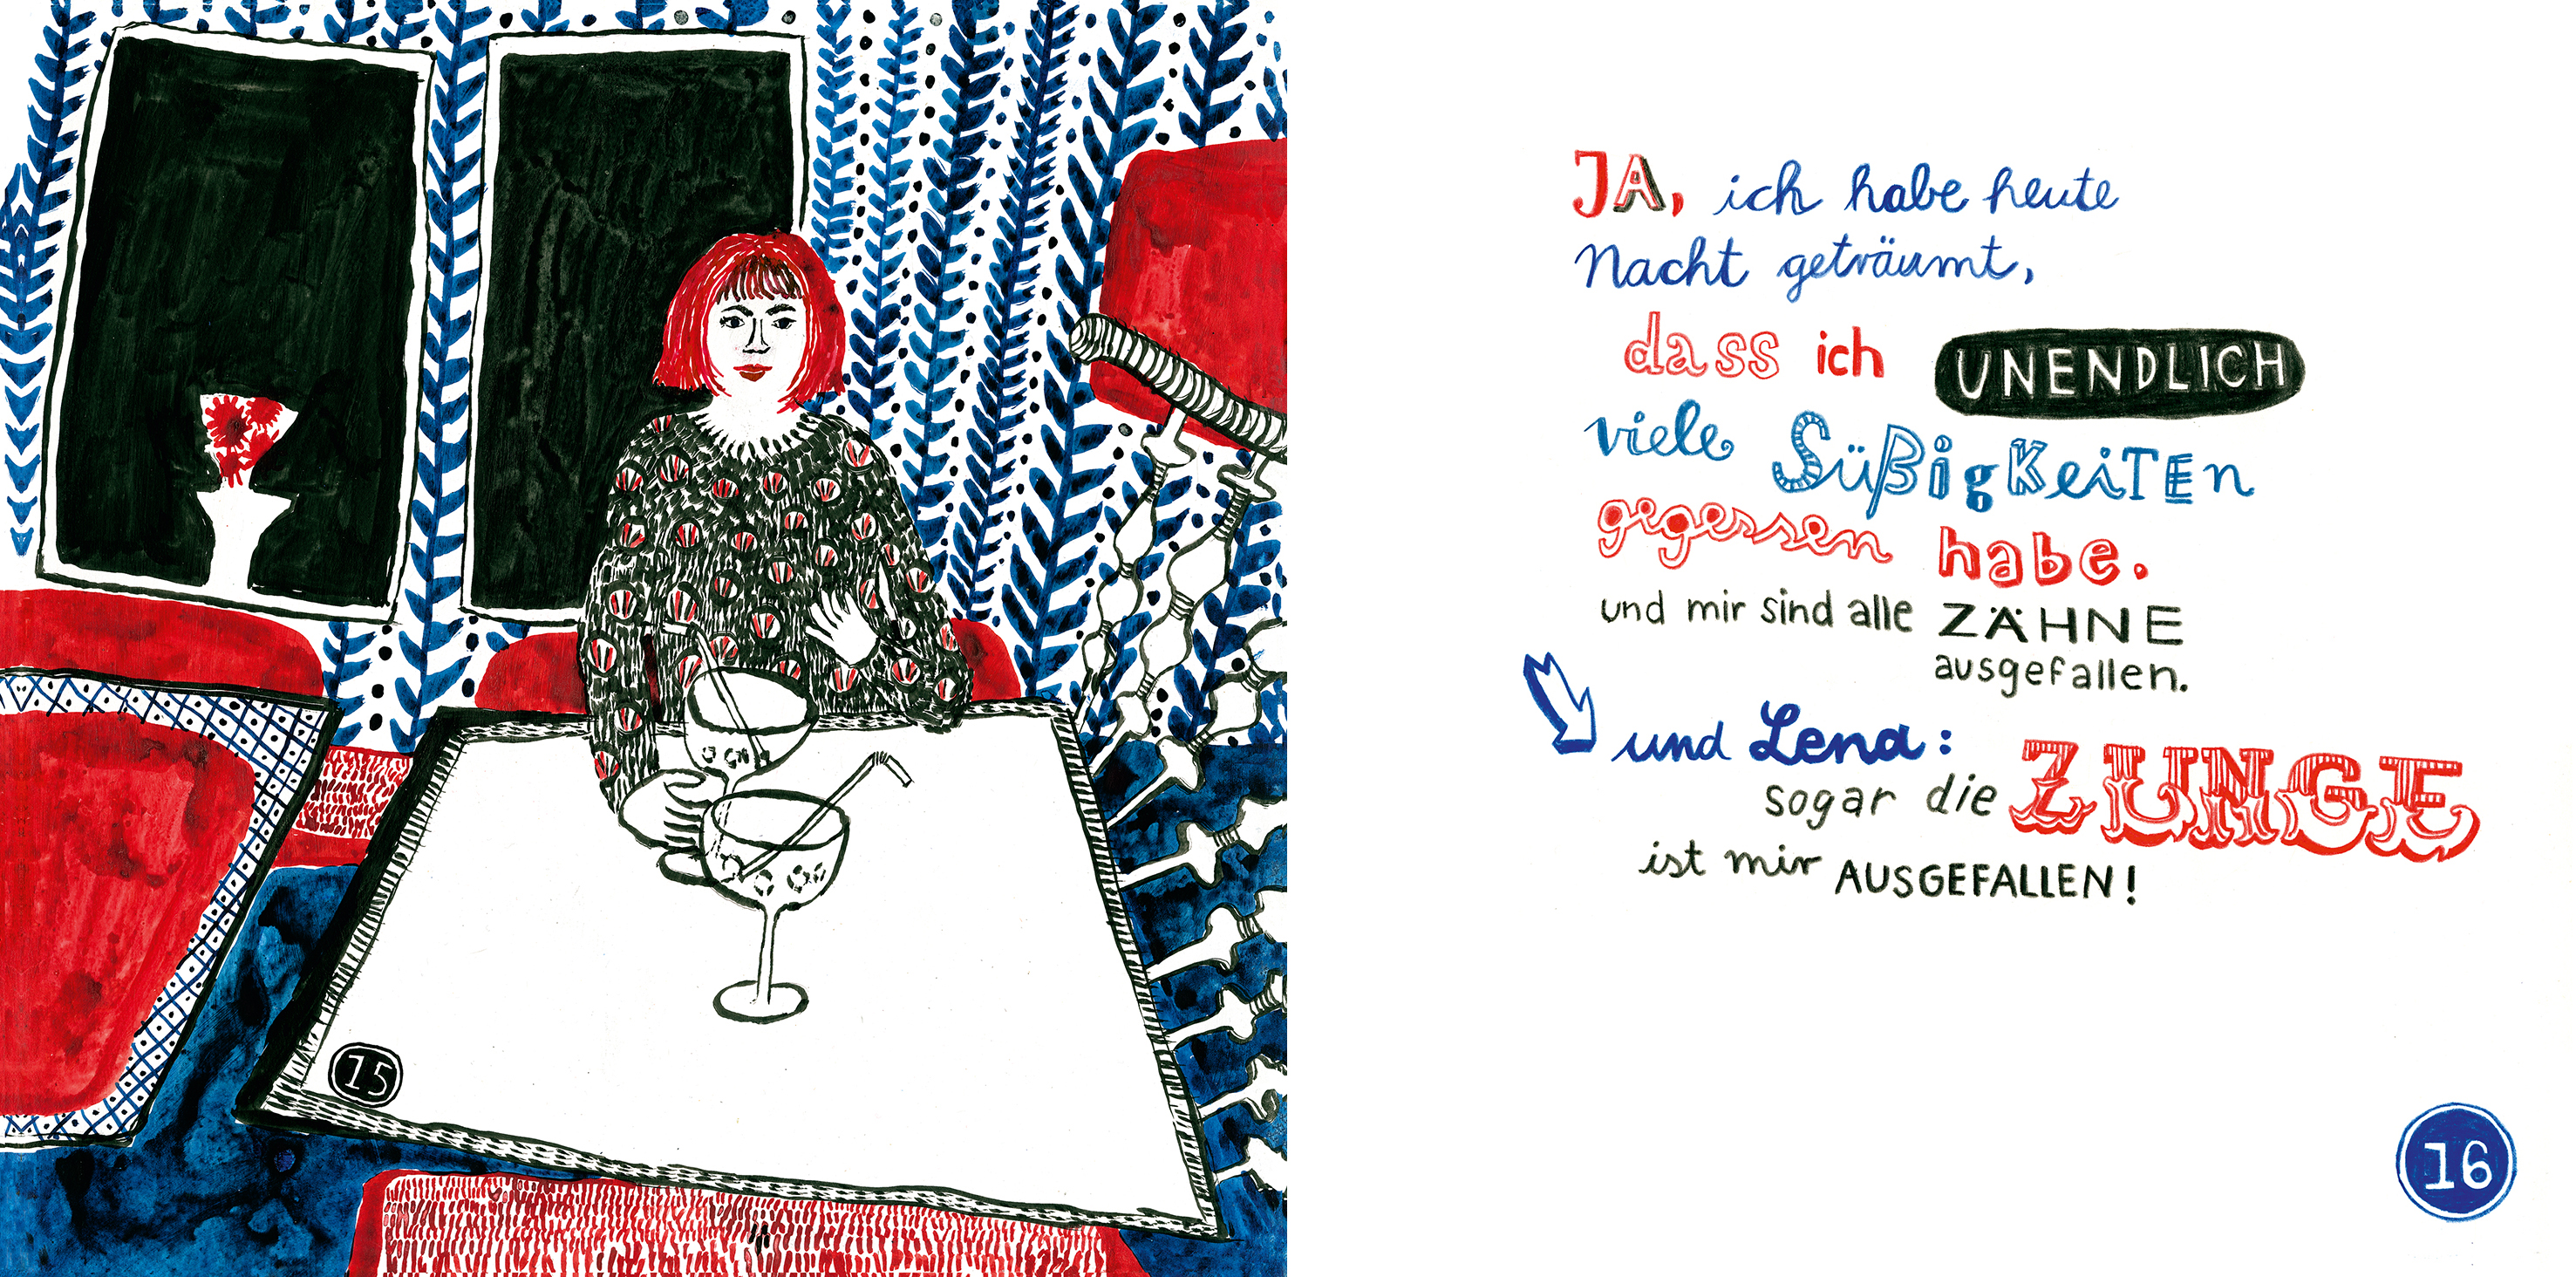 15
JA, ich habe heute
Nacht geträumt,
dass ich UNENDLICH
viele SüßigKeiTEn
gegessen habe.
und mir sind alle ZÄHNE
ausgefallen.
und Lena:
sogar die ZUNGE
ist mir AUSGEFALLEN!
16